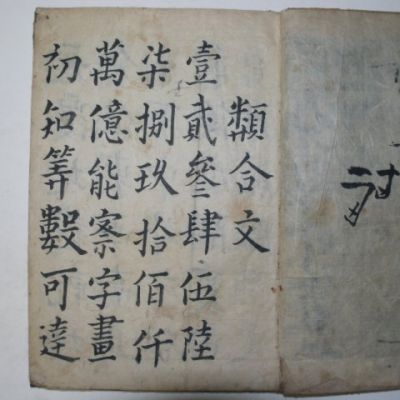 類合文
壹貳叄肆伍陸
柒捌玖拾佰仟
萬億能察字畫
初知筭數可達